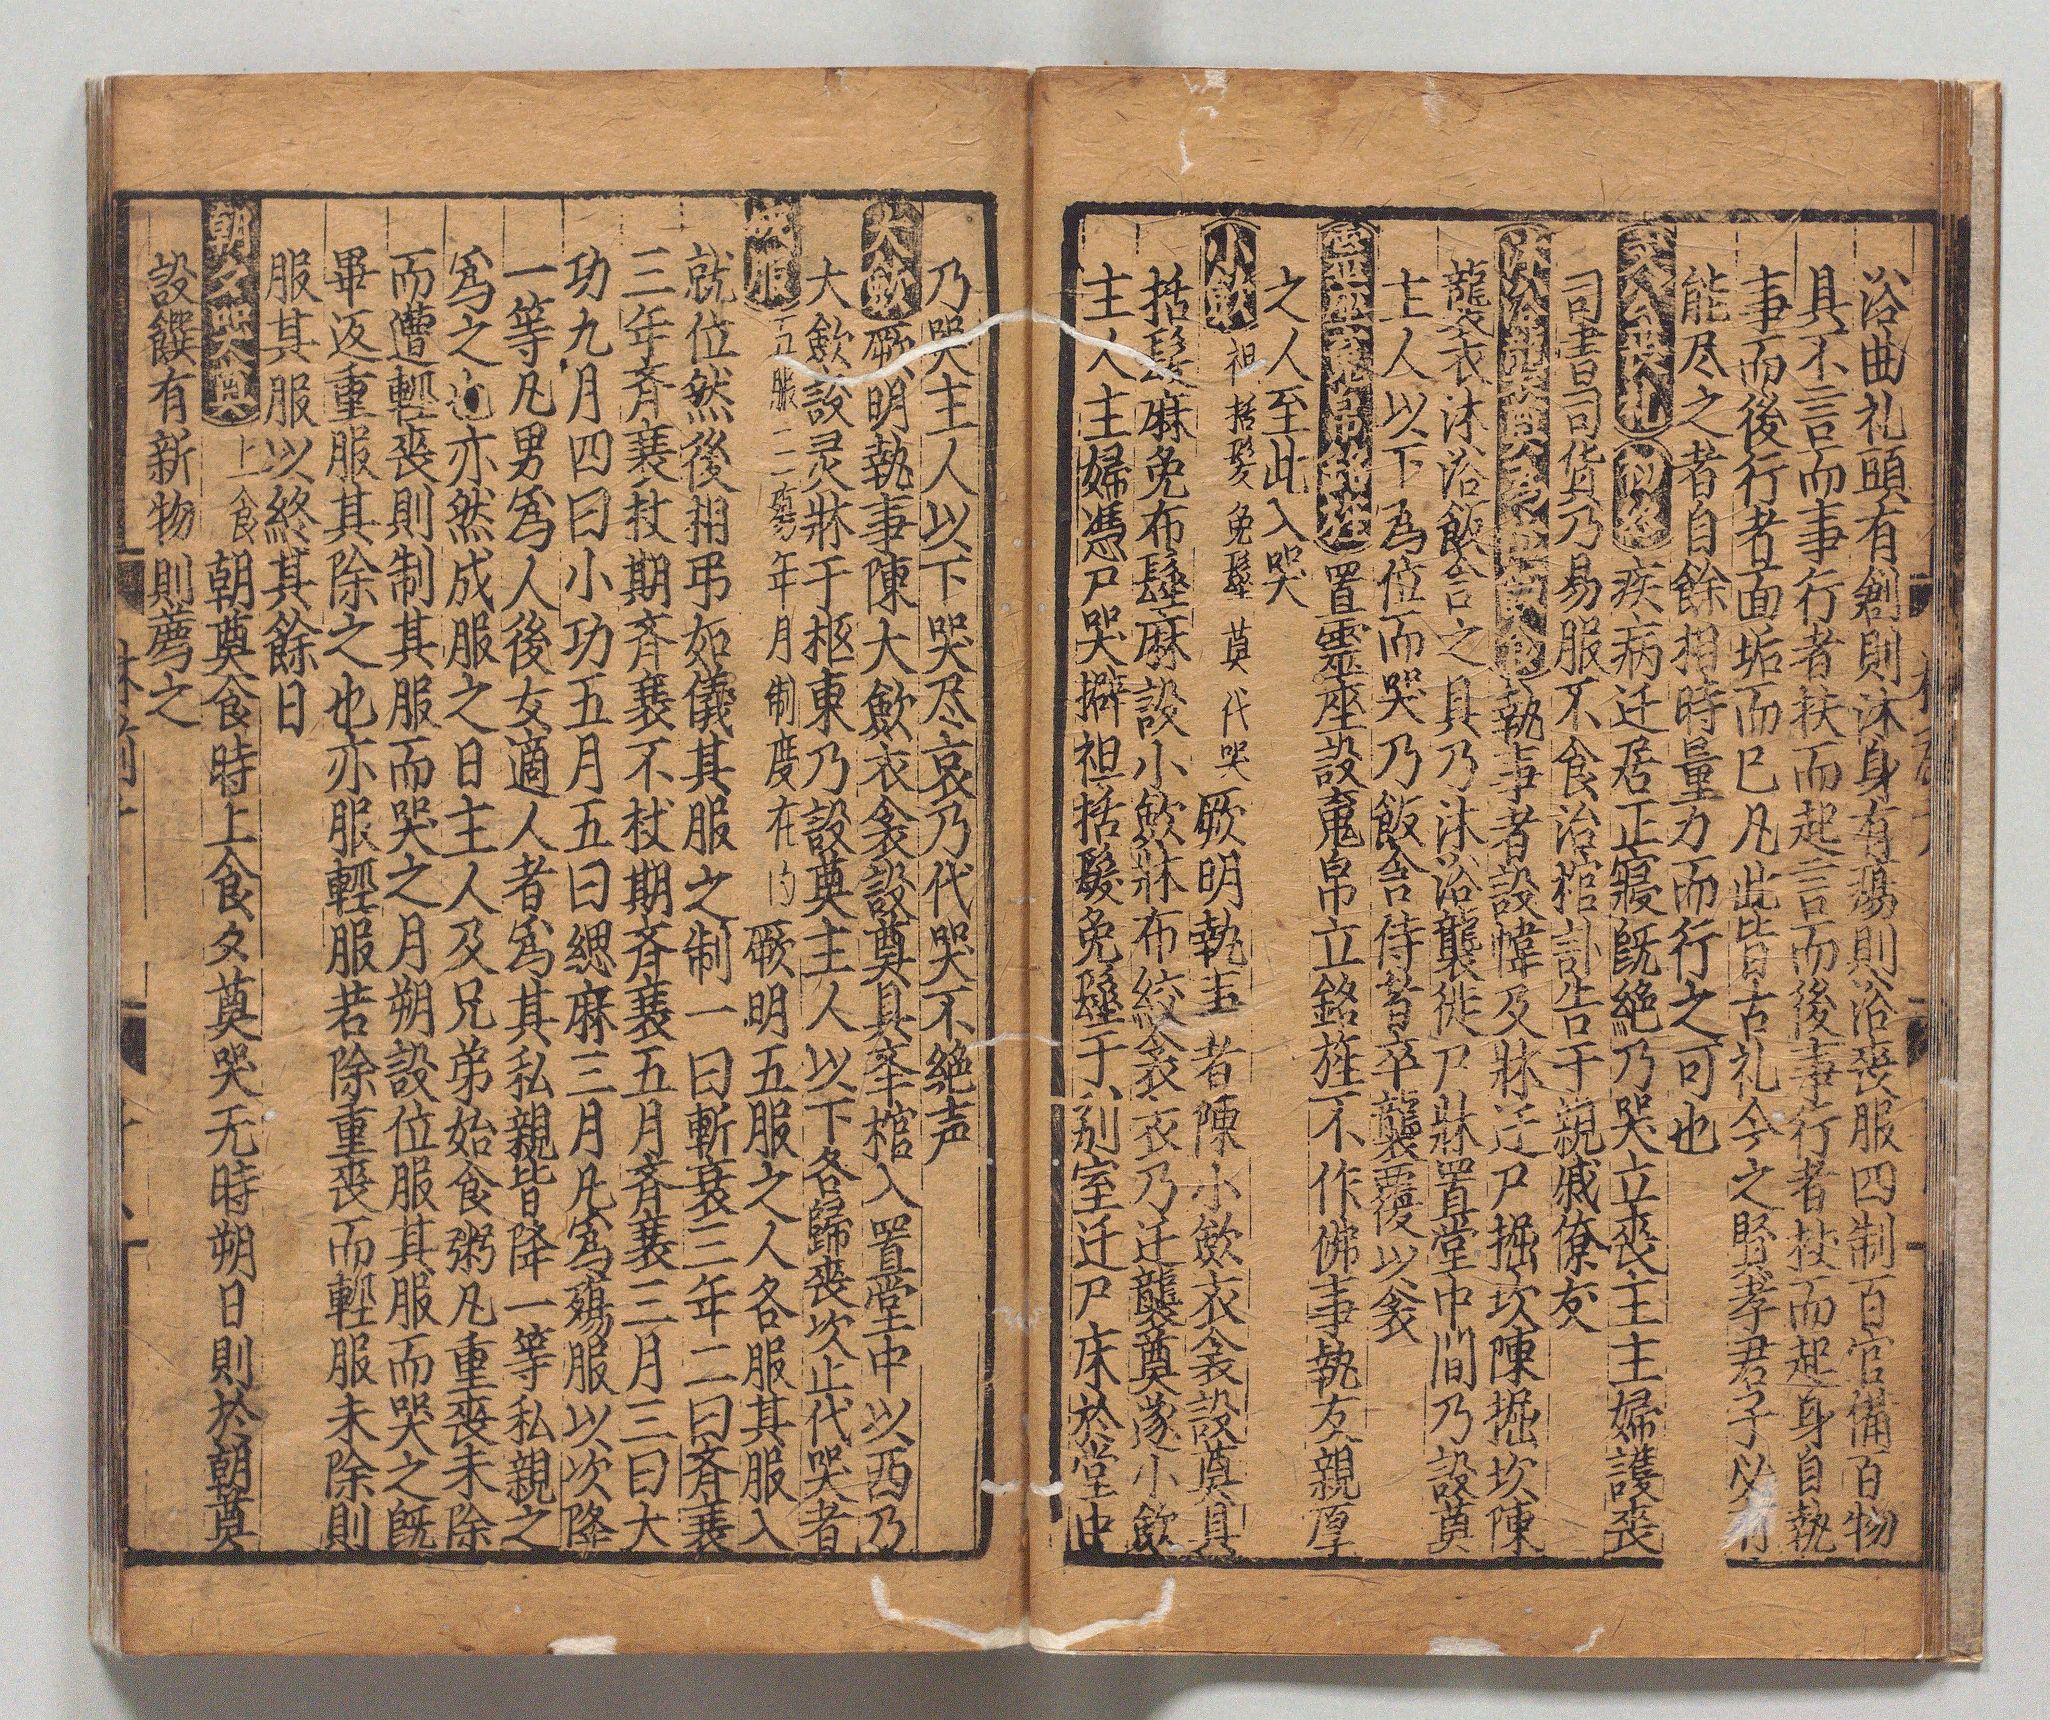 浴曲礼頭有創則沐身有瘍則浴喪服四制百官備百物
具不言而事行者扶而起言而後事行者杖而起身自執
事而後行者面垢而已凡此皆古礼今之賢孝君子必有
能尽之者自餘相時量力而行之可也
文公喪礼 初終 疾病迁居正寢既絶乃哭立喪主主婦護喪
司書司貨乃易服不食治棺訃告于親戚僚友
沐浴襲奠為位飯含 執事者設幃及牀迁尸掘坎陳掘坎陳
襲衣沐浴飯含之具乃沐浴襲徙尸牀置堂中間乃設奠
主人以下為位而哭乃飯含侍者卒襲覆以衾
霊座魂帛銘旌 置霊座設䰟帛立銘旌不作佛事執友親厚
之人至此入哭
小斂 袒括髪免髽奠代哭 厥明執事者陳小斂衣衾設奠具
括髪麻免布髽麻設小斂牀布絞衾衣乃迁襲奠遂小斂
主人主婦憑尸哭擗袒括髪免髽于别室迁尸床於堂中
乃哭主人以下哭尽哀乃代哭不絶声
大斂 厥明執事陳大斂衣衾設奠具举棺入置堂中以西乃
大斂設灵牀于柩東乃設奠主人以下各歸喪次止代哭者
成服 五服二殤年月制度在内 厥明五服之人各服其服入
就位然後相弔如儀其服之制一曰斬衰三年二曰斉衰
三年斉衰杖期斉衰不杖期斉衰五月斉衰三月三曰大
功九月四曰小功五月五曰緦麻三月凡為殤服以次降
一等凡男為人後女適人者為其私親皆降一等私親之
為之也亦然成服之日主人及兄弟始食粥凡重喪未除
而遭輕喪則制其服而哭之月朔設位服其服而哭之既
畢返重服其除之也亦服輕服若除重喪而輕服未除則
服其服以終其餘日
朝夕哭奠 上食 朝奠食時上食夕奠哭无時朔日則於朝奠
設饌有新物則薦之